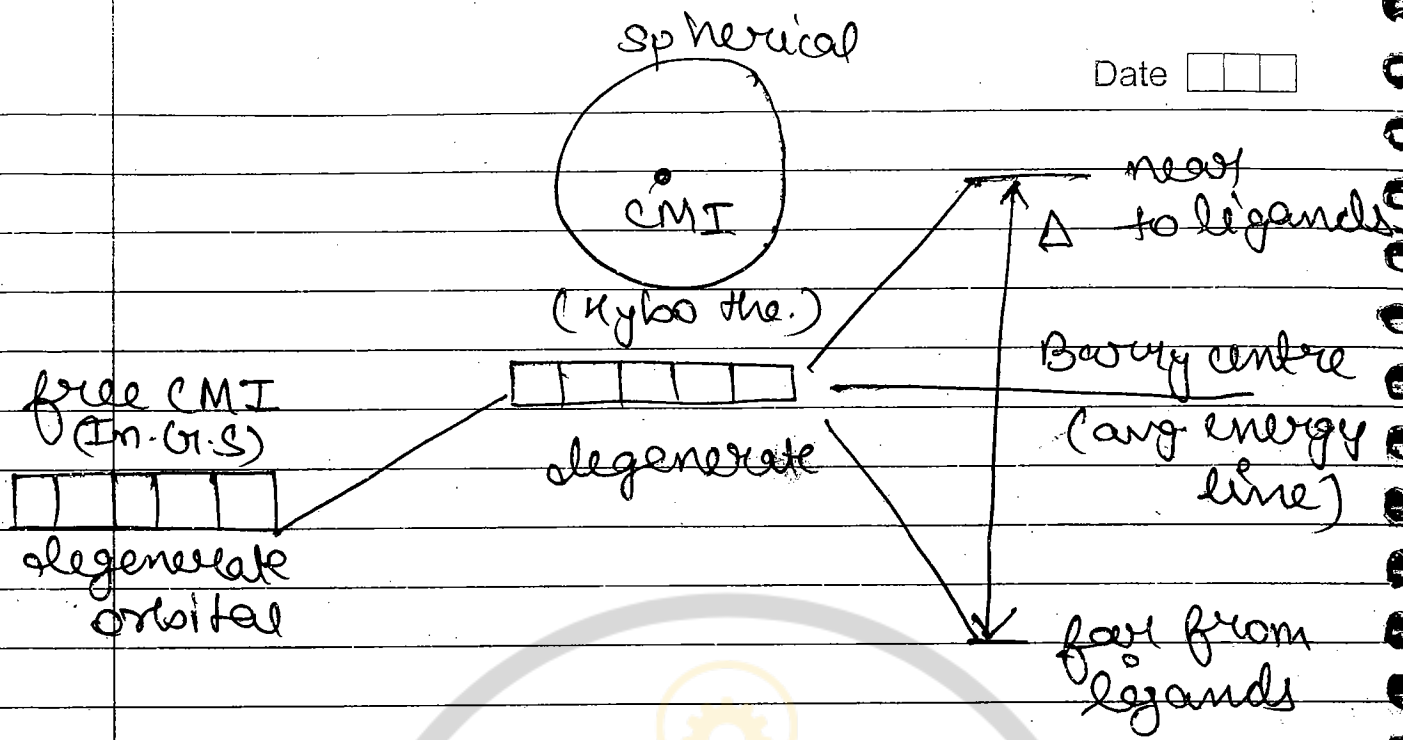 spherical
Date
CMI
(Hypo the.)
near
to ligands
Δ
Barry centre
(avg energy
line)
free CMI
(In. G.S)
degenerate
degenerate
orbital
far from
ligands